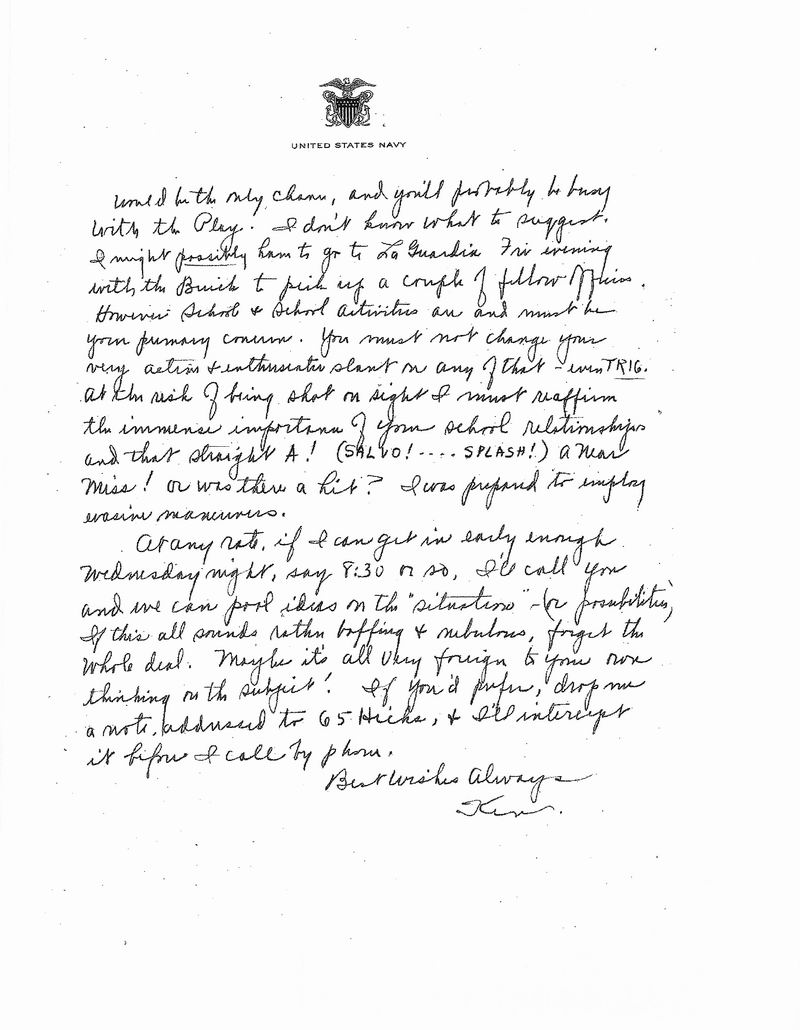 UNITED STATES NAVY
would be the only chance, and you'll probably be busy
with the Play. I don't know what to suggest.
I might possibly have to go to La Guardia Fri evening
with the Buick to pick up a couple of fellow officers.
However School & School activities are and must be
your primary concern. You must not change your
very active & enthusiastic slant on any of that - even TRIG.
At the risk of being shot on sight I must reaffirm
the immense importance of your school relationships
and that straight A! (SALVO!.... SPLASH!) a Near
Miss! or was there a hit? I was prepared to employ
evasive maneuvers.
At any rate, if I can get in early enough
Wednesday night, say 8:30 or so, I'll call you
and we can pool ideas on the "situation" - (or possibilities)
If this all sounds rather baffling & nebulous, forget the
whole deal. Maybe it's all very foreign to your own
thinking on the subject! If you'd prefer, drop me
a note, addressed to 65 Hicks, & I'll intercept
it before I call by phone.
Best Wishes Always
Ken.